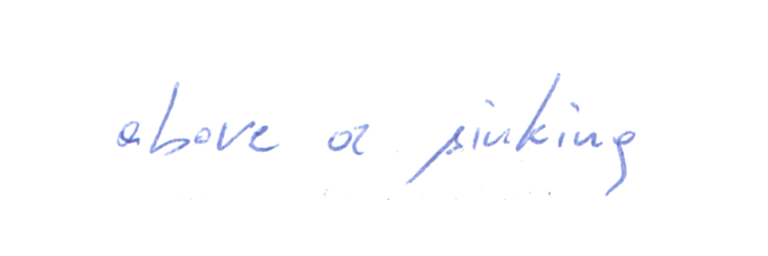 above a sinking